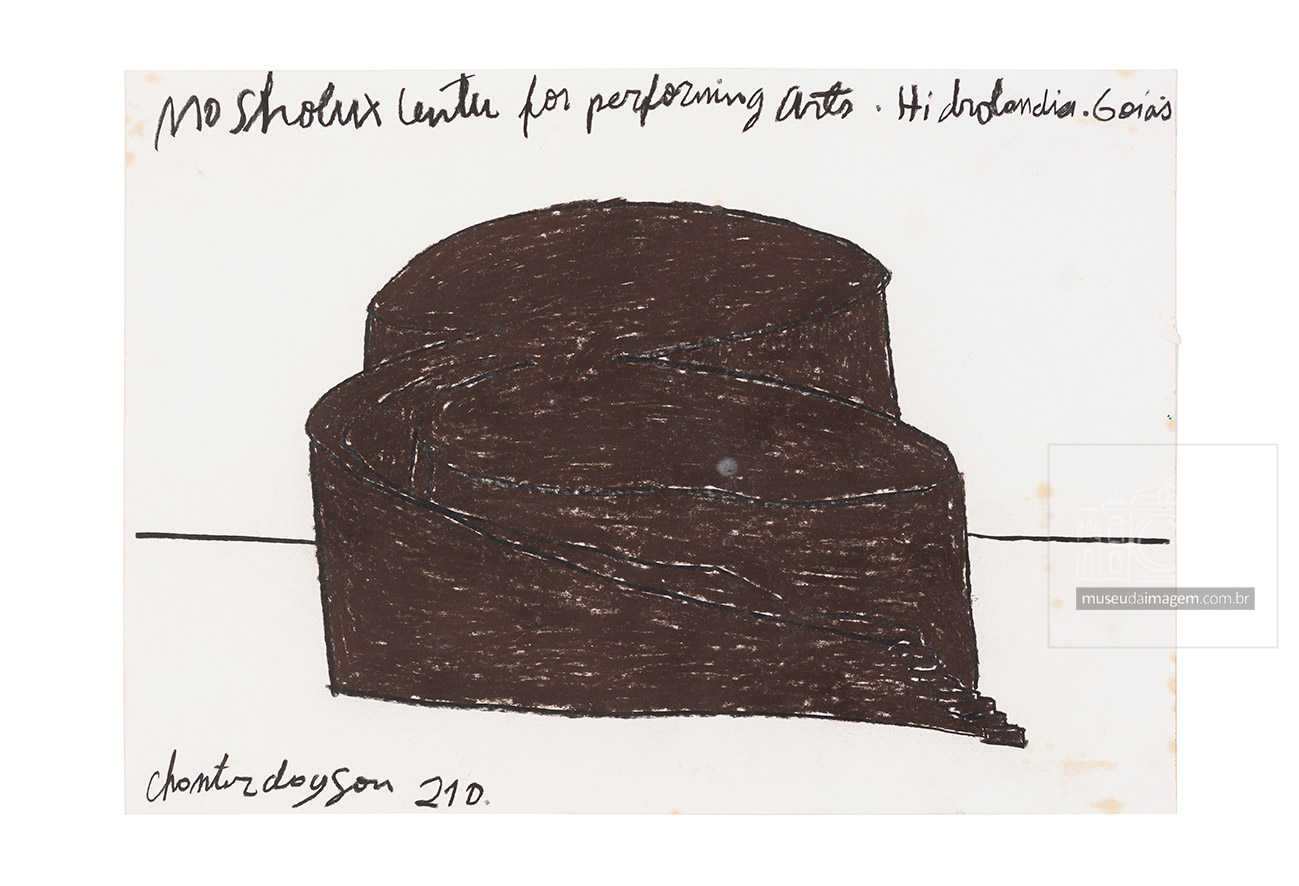 Mo Sholux Center for performing arts . Hidrolandia . Goiás
museudaimagem.com.br
210.